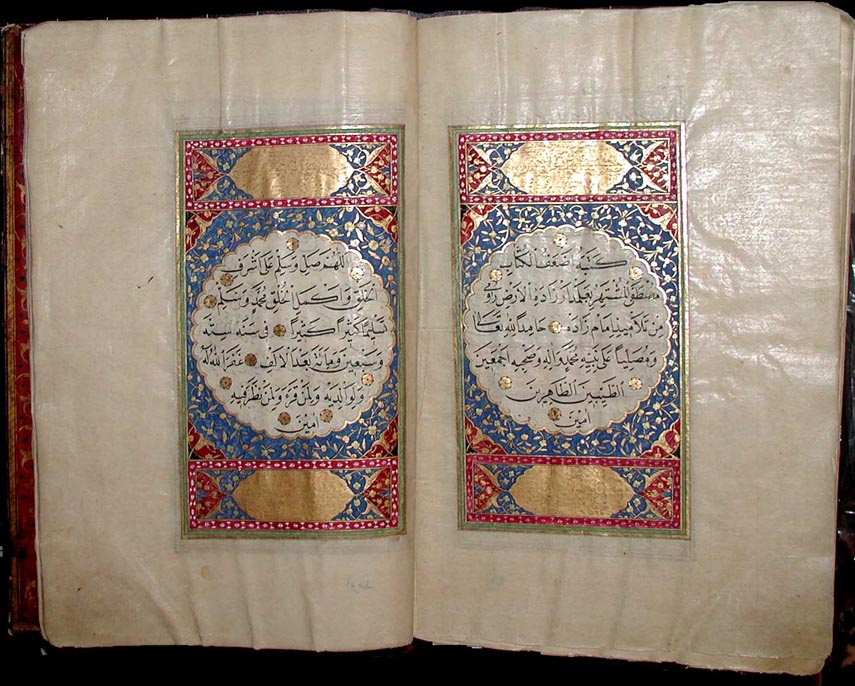 كتبه اضعف الكتاب
مصطفى الشهير بعلمدار زاده الارض رومى
من تلاميذ امام زاده حامدا لله تعالى
ومصليا على نبيه محمد واله وصحبه اجمعين
الطيبين الطاهرين
امين
اللهم صل وسلم على شرف
الخلق واكمل الخلق محمد وسلم
تسليما كثيرا كثيرا فى سنة ستة
وسبعين ومائتين بعد الالف غفر الله له
ولوالديه ولمن قرء ولمن نظر فيه
امين